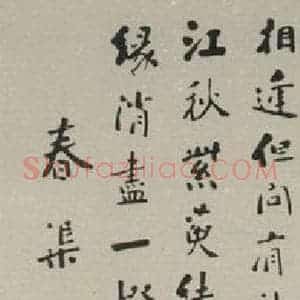 相逢但问有
江秋紫英
缘消尽一
春渠
Shufaziliao.com